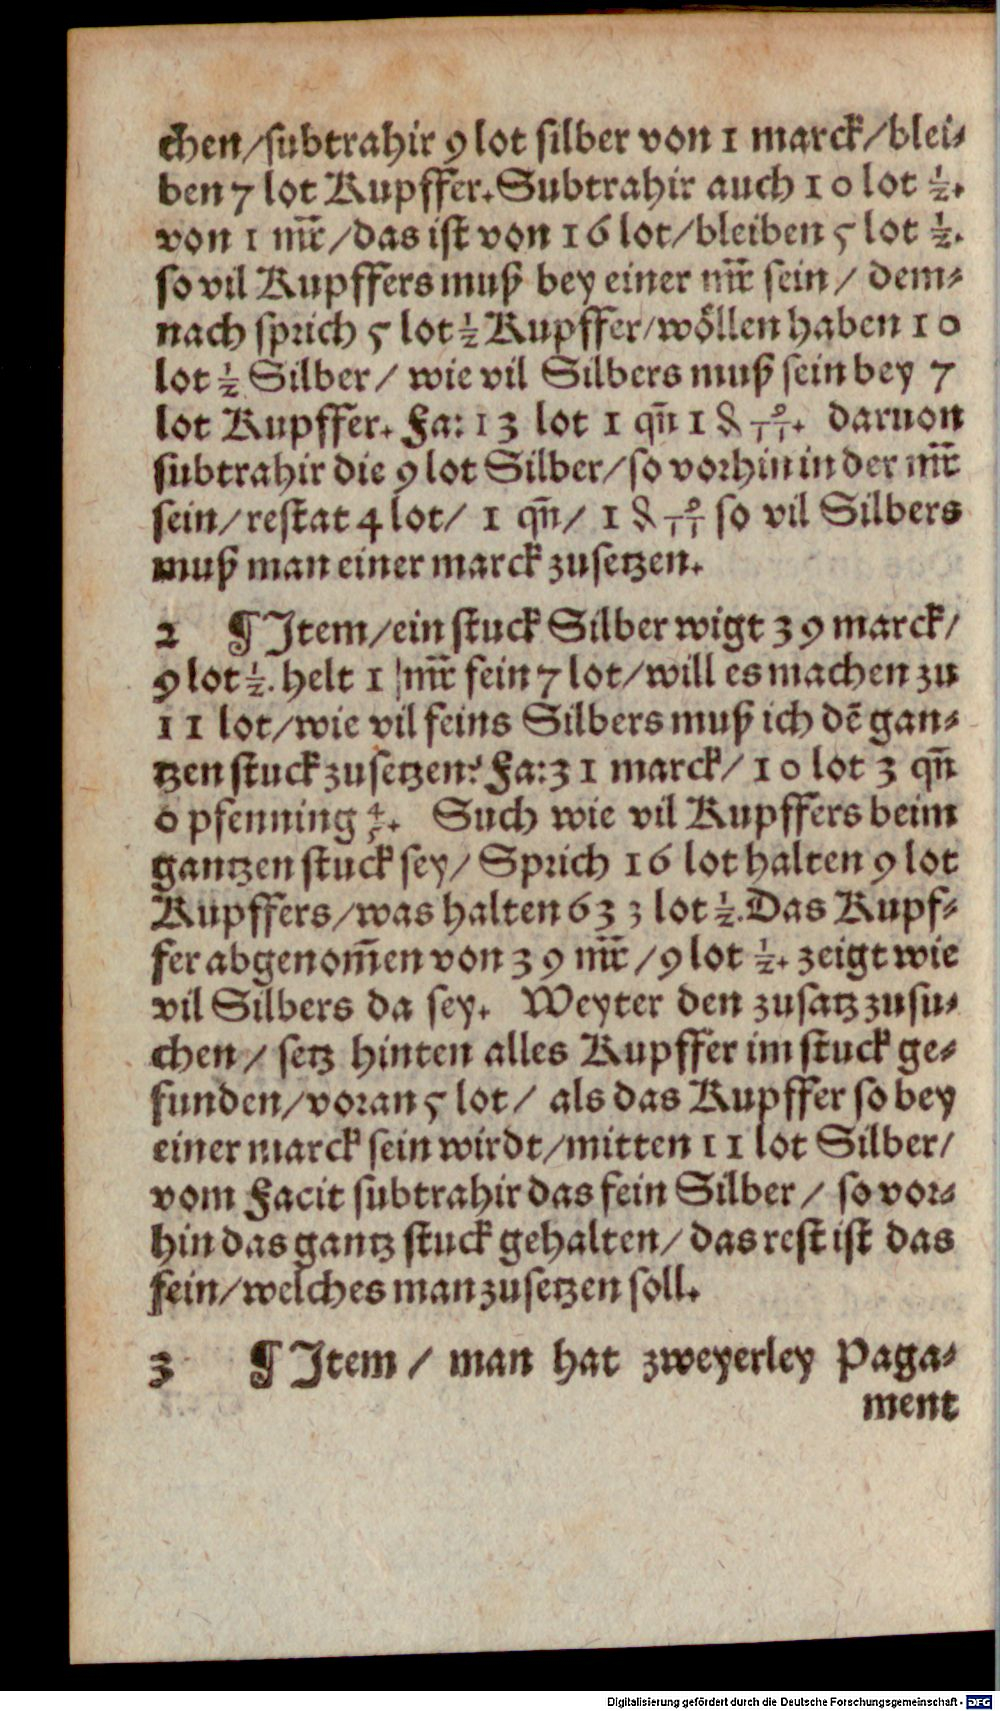 chen/subtrahir 9 lot silber von 1 marck/blei⸗
ben 7 lot Kupffer. Subtrahir auch 10 lot ½.
von 1 mr̄/das ist von 16 lot/bleiben 5 lot ½.
so vil Kupffers muß bey einer mr̄ sein/ dem⸗
nach sprich 5 lot ½ Kupffer/wöllen haben 10
lot ½ Silber/ wie vil Silbers muß sein bey 7
lot Kupffer. Fa: 13 lot 1 qn̄ 1 ₰ 9/11. daruon
subtrahir die 9 lot Silber/so vorhin in der mr̄
sein/restat 4 lot/ 1 qn̄/ 1 ₰ 9/11 so vil Silbers
muß man einer marck zusetzen.
2 ¶ Item/ein stuck Silber wigt 39 marck/
9 lot ½. helt 1 mr̄ fein 7 lot/will es machen zu
11 lot/wie vil feins Silbers muß ich dē gan⸗
tzen stuck zusetzen? Fa: 31 marck/ 10 lot 3 qn̄
0 pfenning 4/5. Such wie vil Kupffers beim
gantzen stuck sey/ Sprich 16 lot halten 9 lot
Kupffers/was halten 633 lot ½. Das Kupf⸗
fer abgenom̄en von 39 mr̄/9 lot ½. zeigt wie
vil Silbers da sey. Weyter den zusatz zusu⸗
chen/ setz hinten alles Kupffer im stuck ge⸗
funden/voran 5 lot/ als das Kupffer so bey
einer marck sein wirdt/mitten 11 lot Silber/
vom Facit subtrahir das fein Silber/ so vor⸗
hin das gantz stuck gehalten/das rest ist das
fein/welches man zusetzen soll.
3 ¶ Item/ man hat zweyerley Paga⸗
ment
Digitalisierung gefördert durch die Deutsche Forschungsgemeinschaft - DFG